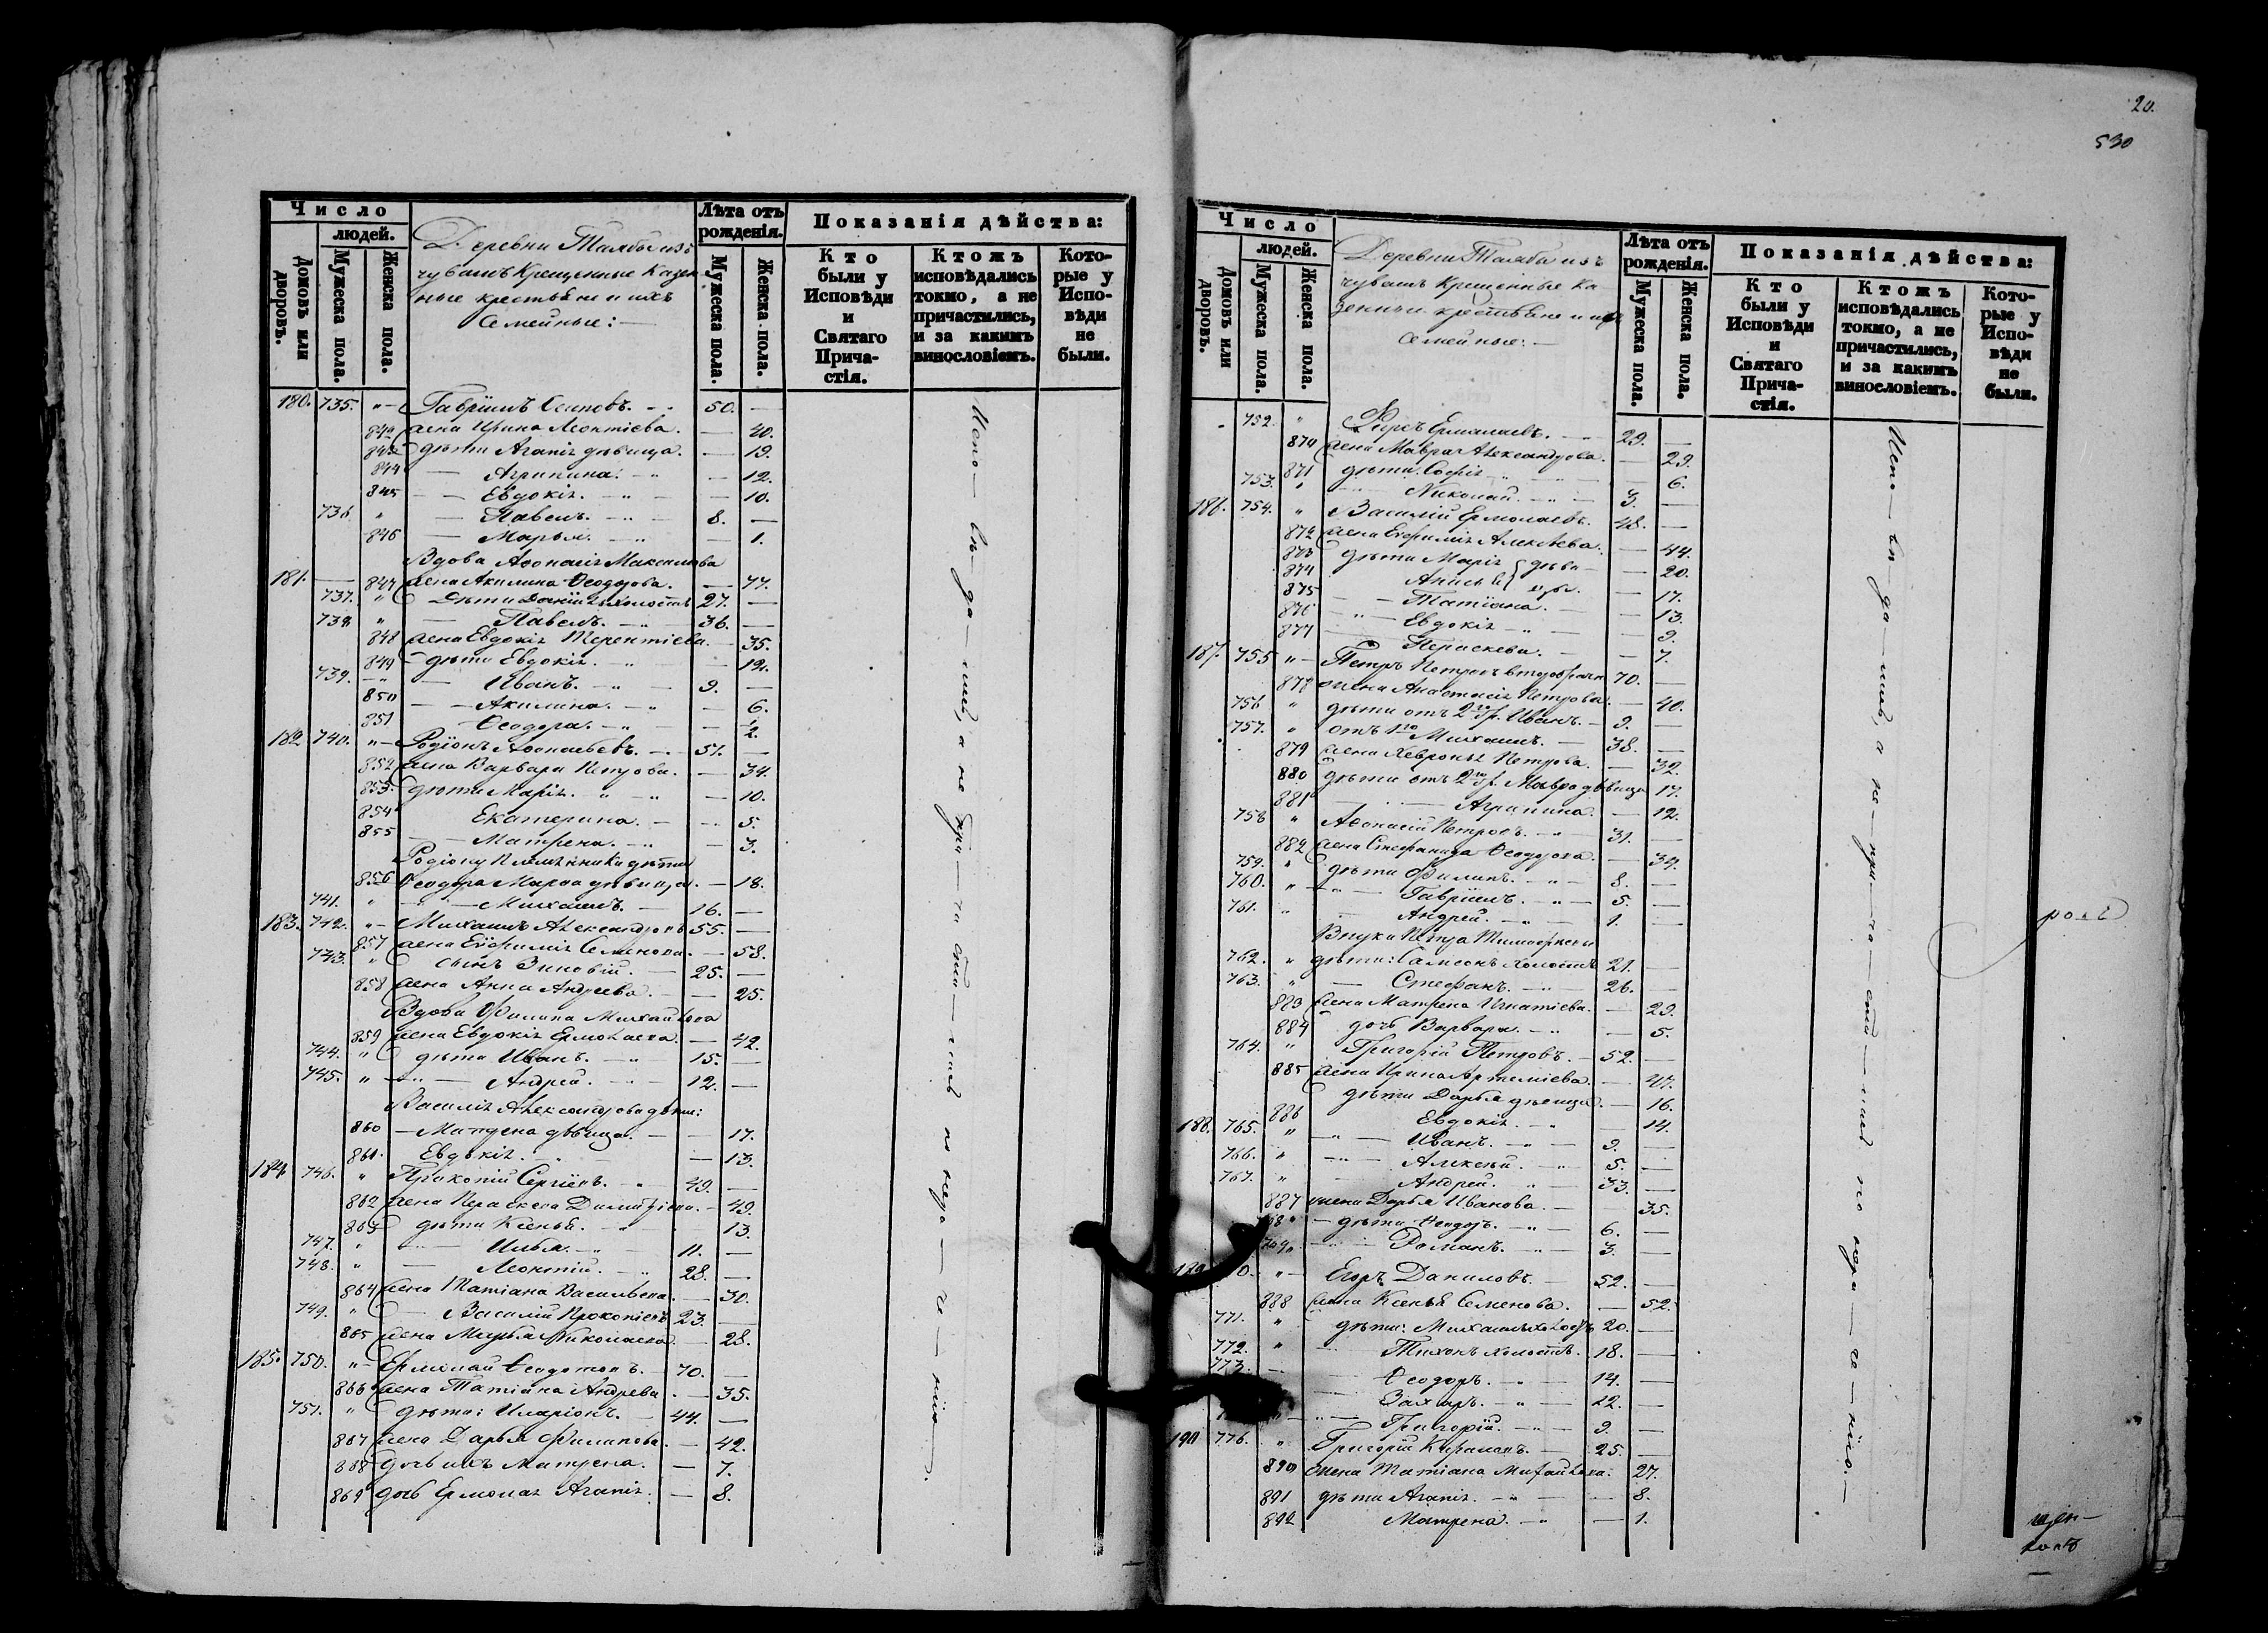 20.
530
Число
людей.
Домовъ или дворовъ.
Мужеска пола.
Женска пола.
Деревни Таяба изъ
чувашъ Крещенные Казен-
ные крестьяне и ихъ
Семейные: —
Лѣта отъ рожденія.
Мужеска пола.
Женска пола.
Показанія дѣйства:
Кто были у Исповѣди и Святаго Прича-стія.
Ктожъ исповѣдались токмо, а не причастились, и за какимъ винословіемъ.
Кото-рые у Испо-вѣди не были.
180. 735. „ — Гавріилъ Осиповъ. 50. —
842 жена Ирина Леонтіева. — 40.
843 дѣти Агапія дѣвица. — 19.
844 — Агрипина. — 12.
845 — Евдокія. — 10.
736. „ — Павелъ. 8. —
846 — Марья. — 1.
Вдова Афонасія Максимова
181. — 847 жена Акилина Ѳеодорова. — 77.
737. „ Дѣти Даніилъ холостъ 27. —
738. „ — Павелъ. 36. —
848 жена Евдокія Терентіева. — 35.
849 дѣти Евдокія. — 12.
739. „ — Иванъ. 9. —
850 — Акилина. — 6.
851 — Ѳеодора. — ½.
182. 740. „ — Родіонъ Афонасьевъ. 51. —
852 жена Варвара Петрова. — 34.
853. дѣти Марія. — 10.
854 Екатерина. — 5.
855 — Матрена. — 3.
Родіону Племянника дѣти
856 Ѳеодора Марфа дѣвица. — 18.
741. „ — Михаилъ. 16. —
183. 742. „ — Михаилъ Александровъ 55. —
857 жена Евфимія Семенова. — 58.
743. „ сынъ Зиновій. 25. —
858 жена Анна Андреева. — 25.
Вдова Филипа Михайлова
859 жена Евдокія Ермолаева. — 42.
744. „ дѣти Иванъ. 15. —
745. „ — Андрей. 12. —
Василія Александрова дѣти:
860 — Матрена дѣвица. — 17.
861. Евдокія. — 13.
184. 746. „ Прокопій Сергіевъ. 49. —
862 жена Параскева Димитріева. — 49.
863 дѣти Ксенья. 13.
747. „ — Илья. 11. —
748. „ — Леонтій. 28. —
864 жена Татіана Васильева. — 30.
749. „ — Василій Прокопіевъ 23. —
865 жена Марья Николаева. — 28.
185. 750. „ — Ермолай Ѳеодотовъ. 70. —
866 жена Татіана Андреева. — 35.
751. „ дѣти: Иларіонъ. 44. —
867 жена Дарья Филипова. — 42.
868 дочь ихъ Матрена. — 7.
869 дочь Ермолая Агапія. — 8.
Испо — вѣ — да — лись, а не при — ча — сти — лись по нера — дѣ — нію.
Число
людей.
Домовъ или дворовъ.
Мужеска пола.
Женска пола.
Деревни Таяба изъ
чувашъ Крещенные Ка
зенные крестьяне и ихъ
Семейные: —
Лѣта отъ рожденія.
Мужеска пола.
Женска пола.
Показанія дѣйства:
Кто были у Исповѣди и Святаго Прича-стія.
Ктожъ исповѣдались токмо, а не причастились, и за какимъ винословіемъ.
Кото-рые у Испо-вѣди не были.
752. „ Ермолаевъ. 29. —
870 жена Мавра Александрова. — 29.
871 дѣти Софія — 6.
753. „ Николай. 3. —
186. 754. „ Василій Ермолаевъ. 48. —
872 жена Евфимія Алексѣева. — 44.
873 дѣти Марія } дѣви — — 20.
874 Анисья } цы. — 17.
875 — Татіана. — 13.
876 — Евдокія — 9.
877 Параскева. — 7.
187. 755. „ — Петръ Петровъ второбрачн 70. —
878 жена Анастасія Петрова. — 40.
756 „ дѣти отъ 2го бр. Иванъ. 9. —
757. „ отъ 1го Михаилъ. 38. —
879 жена Хевронья Петрова. — 32.
880 дѣти отъ 2го бр. Мавра дѣвица 17.
881 — Агрипина. — 12.
758 „ Афонасій Петровъ. 31. —
882 жена Стефанида Ѳеодорова. — 34.
759. „ дѣти Филипъ. 8. —
760. „ — Гавріилъ. 5. —
761. „ Андрей. 1. —
Внуки Петра Тимофеевы
762. „ дѣти: Самсонъ холостъ 21. —
763. „ — Стефанъ. 26. —
883 жена Матрена Игнатіева. — 29.
884 дочь Варвара. — 5.
764. „ Григорій Петровъ. 52. —
885 жена Ирина Артеміева. — 47.
дѣти Дарья дѣвица. — 16.
886 Евдокія. — 14.
188. 765. „ — Иванъ. 9. —
766. „ — Алексѣй. 5. —
767. „ Андрей. 33. —
887 жена Дарья Иванова. — 35.
„ — дѣти Ѳеодоръ. 6. —
Романъ. 3. —
„ — Егоръ Даниловъ. 52. —
888 жена Ксенья Семенова. — 52.
771. „ дѣти: Михаилъ холостъ 20. —
772. „ Тихонъ холостъ. 18. —
773. Ѳеодоръ. 14. —
Захаръ. 12. —
Григорій. 9. —
190 776. „ Григорій Кириловъ. 25. —
890 жена Татіана Михайлова. 27.
891 дѣти Агапія. — 8.
892 Матрена. — 1.
Испо — вѣ — да — лись, а не — при — ча — сти — лись по нера — дѣ — нію. —